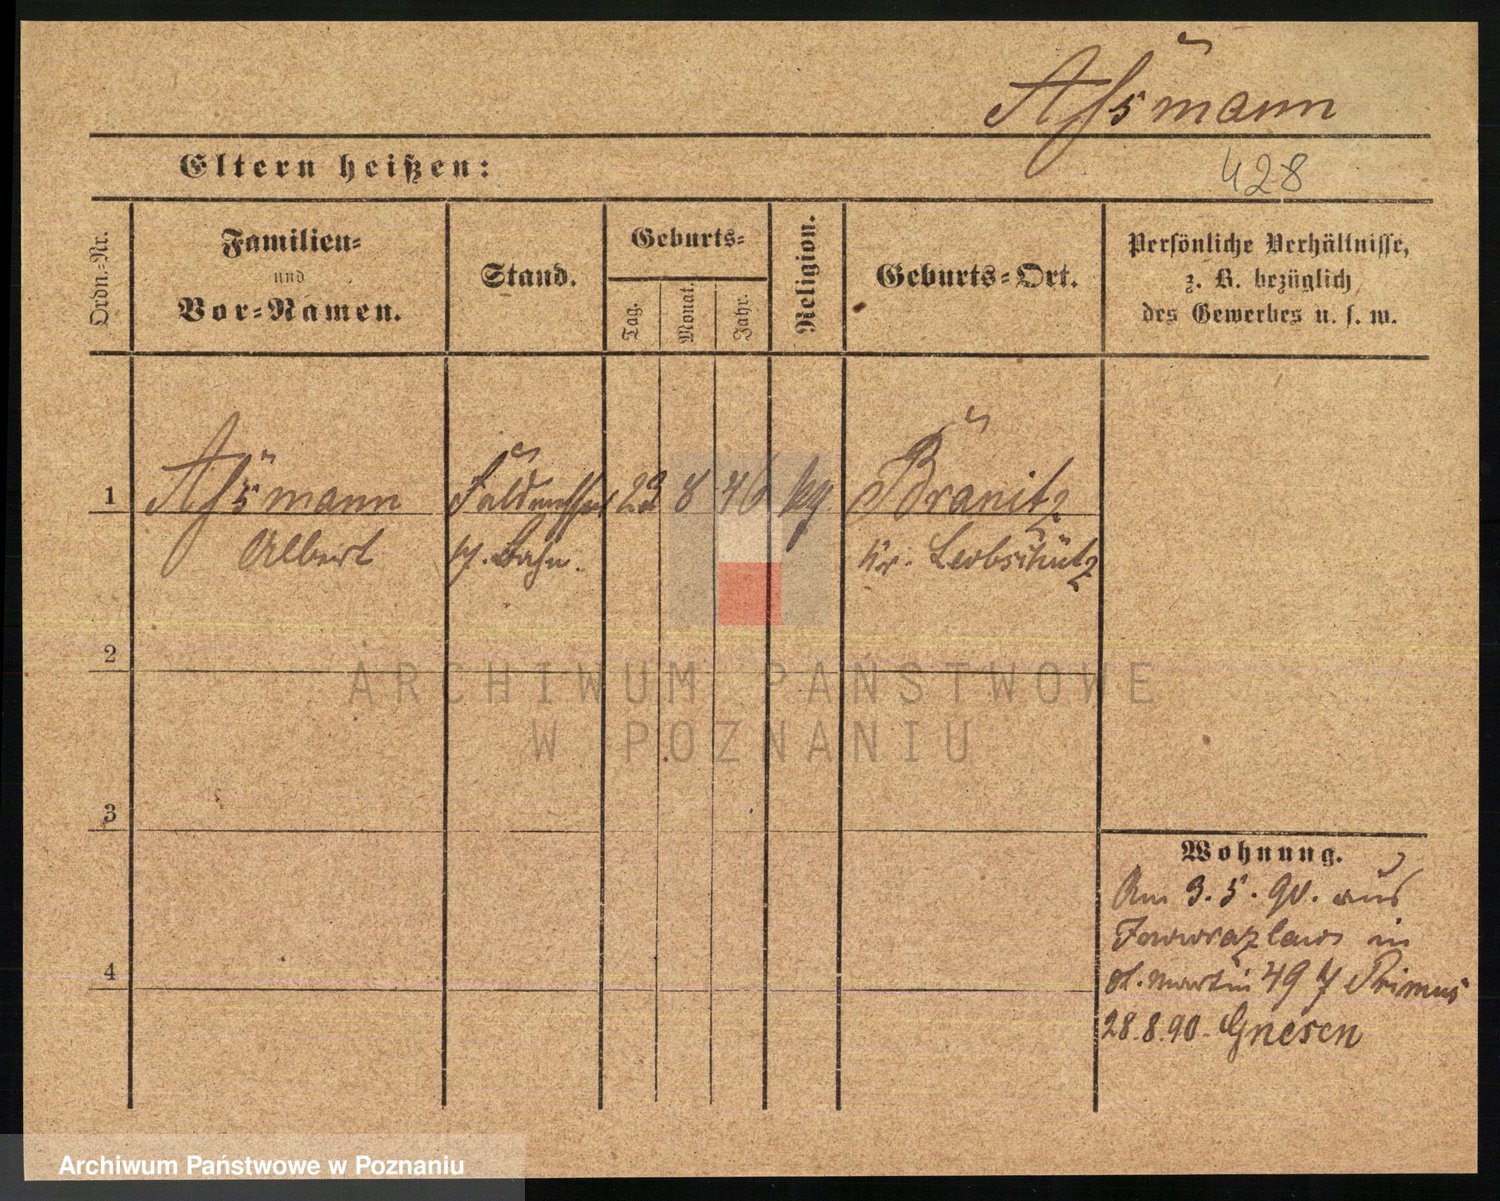 Aſsmann
Eltern heißen:
428
Ordn.-Nr.
Familien-
und
Vor-Namen.
Stand.
Geburts-
Tag.
Monat.
Jahr.
Religion.
Geburts-Ort.
Persönliche Verhältnisse,
z. B. bezüglich
des Gewerbes u. s. w.
1
Aſsmann
Albert
23 8 46
Branitz
Kr. Leobschütz
2
3
4
Wohnung.
Am 3.5.90. aus
Inowrazlaw in
St. Martin 49 b/ Primus
28.8.90. Gnesen
ARCHIWUM PAŃSTWOWE
W POZNANIU
Archiwum Państwowe w Poznaniu